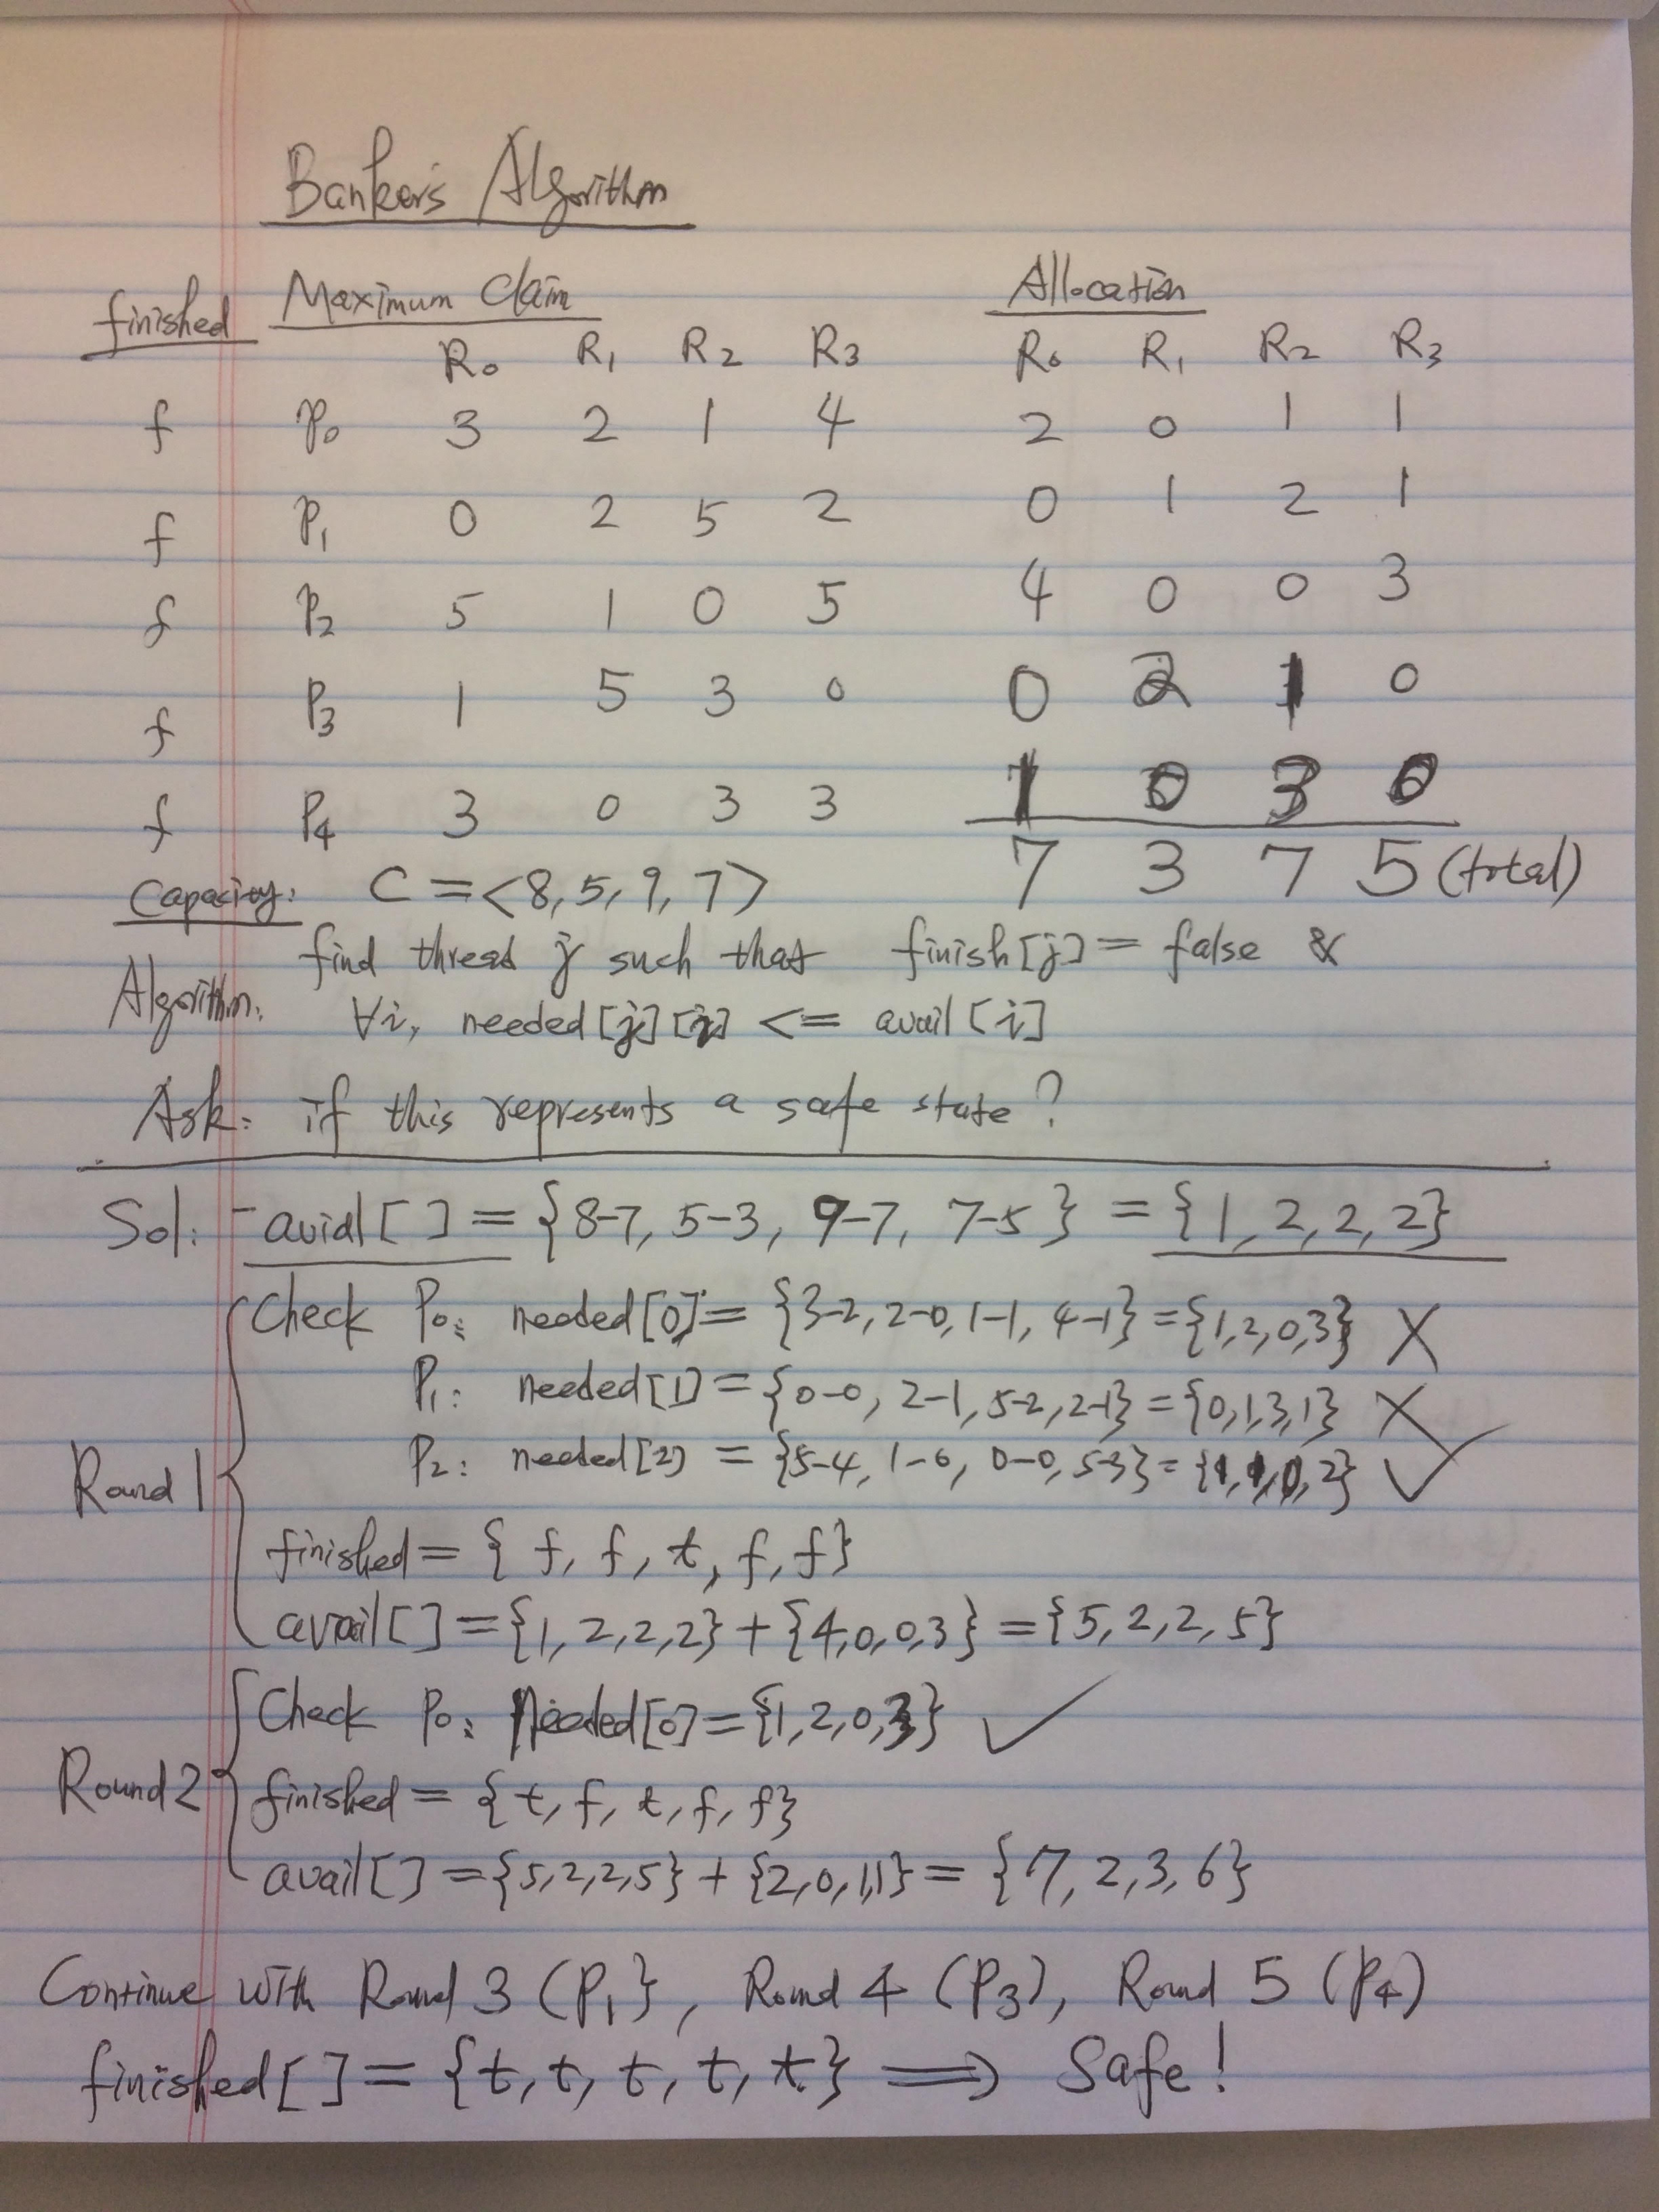 Banker's Algorithm
finished Maximum Claim Allocation
R₀ R₁ R₂ R₃ R₀ R₁ R₂ R₃
f P₀ 3 2 1 4 2 0 1 1
f P₁ 0 2 5 2 0 1 2 1
f P₂ 5 1 0 5 4 0 0 3
f P₃ 1 5 3 0 0 2 1 0
f P₄ 3 0 3 3 1 0 3 0
Capacity: C = <8, 5, 9, 7> 7 3 7 5 (total)
Algorithm: find thread j such that finish[j] = false &
∀i, needed[j][i] <= avail[i]
Ask: if this represents a safe state?
Sol: avial[ ] = {8-7, 5-3, 9-7, 7-5} = {1, 2, 2, 2}
Check P₀: needed[0] = {3-2, 2-0, 1-1, 4-1} = {1,2,0,3} X
P₁: needed[1] = {0-0, 2-1, 5-2, 2-1} = {0,1,3,1} X
P₂: needed[2] = {5-4, 1-0, 0-0, 5-3} = {1,1,0,2} ✓
Round 1
finished = {f, f, t, f, f}
avail[ ] = {1, 2, 2, 2} + {4,0,0,3} = {5, 2, 2, 5}
Check P₀: Needed[0] = {1,2,0,3} ✓
Round 2 finished = {t, f, t, f, f}
avail[ ] = {5,2,2,5} + {2,0,1,1} = {7, 2, 3, 6}
Continue with Round 3 (P₁}, Round 4 (P₃), Round 5 (P₄)
finished[ ] = {t, t, t, t, t} ⟹ Safe!